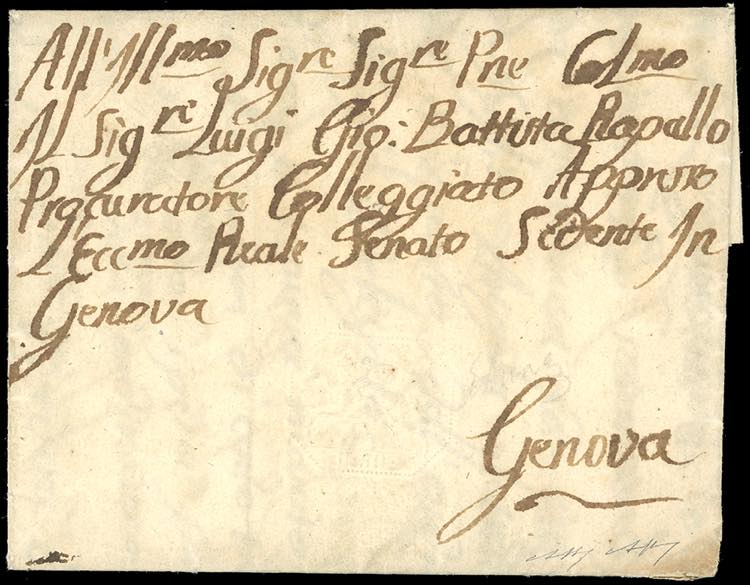 All'Illmo Sigre Sigre Pne Colmo
Il Sigre Luigi Gio: Battista Rapallo
Procuratore Colleggiato Appresso
L'Eccmo Reale Senato Sedente In
Genova
Genova